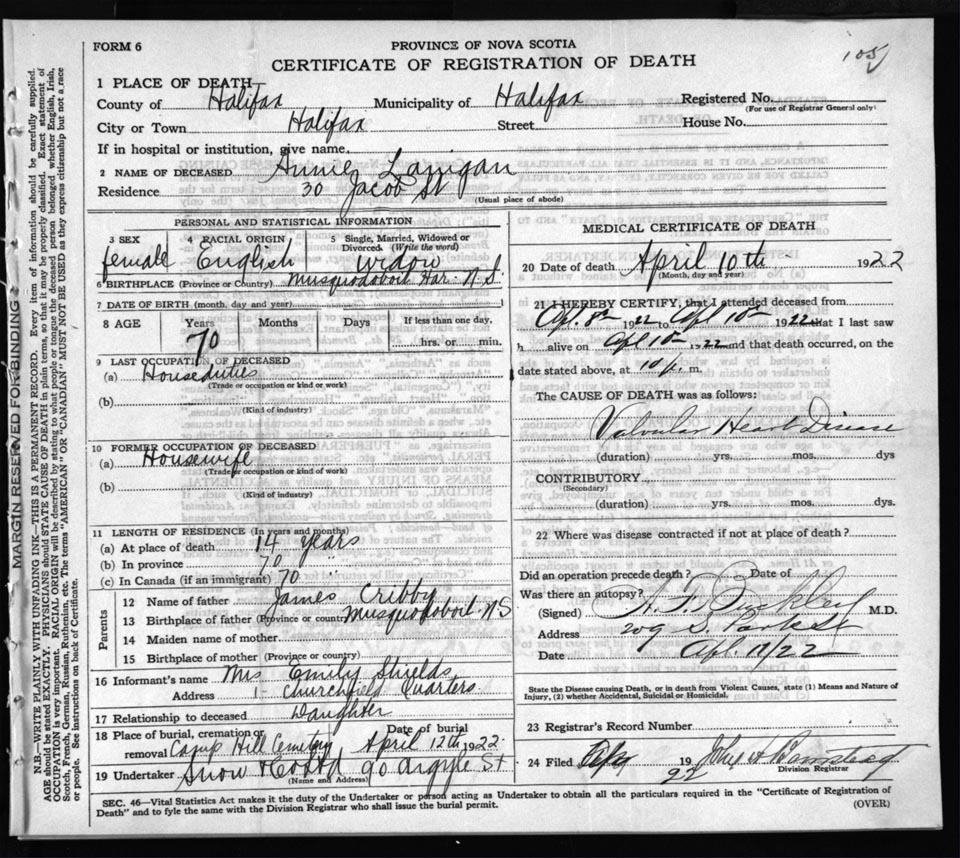 FORM 6
PROVINCE OF NOVA SCOTIA
105
CERTIFICATE OF REGISTRATION OF DEATH
1 PLACE OF DEATH—
County of Halifax Municipality of Halifax Registered No.
(For use of Registrar General only)
City or Town Halifax Street House No.
If in hospital or institution, give name.
2 NAME OF DECEASED Annie Lanigan
Residence 30 Jacob St
(Usual place of abode)
PERSONAL AND STATISTICAL INFORMATION
3 SEX 4 RACIAL ORIGIN 5 Single, Married, Widowed or
Divorced. (Write the word)
female English Widow
6 BIRTHPLACE (Province or Country) Musquodoboit Har. N.S.
7 DATE OF BIRTH (month, day and year)
8 AGE Years Months Days If less than one day.
70 hrs. or min.
9 LAST OCCUPATION OF DECEASED
(a) Houseduties
(Trade or occupation or kind or work)
(b)
(Kind of industry)
10 FORMER OCCUPATION OF DECEASED
(a) Housewife
(Trade or occupation or kind of work)
(b)
(Kind of industry)
11 LENGTH OF RESIDENCE (In years and months)
(a) At place of death 14 years
(b) In province 70
(c) In Canada (if an immigrant) 70
Parents
12 Name of father James Cribby
13 Birthplace of father (Province or country) Musquodoboit N S
14 Maiden name of mother
15 Birthplace of mother (Province or country)
16 Informant's name Mrs Emily Shields
Address 1 - Churchfield Quarters
17 Relationship to deceased Daughter
18 Place of burial, cremation or Date of burial
removal Camp Hill Cemetery April 12th 1922
19 Undertaker Snow & Co Ltd 90 Argyle St
(Name and Address)
MEDICAL CERTIFICATE OF DEATH
20 Date of death April 10th 1922
(Month, day and year)
21 I HEREBY CERTIFY, that I attended deceased from
Apl. 8th 1922 to Apl 10th 1922 that I last saw
h alive on Apl 10th 1922 and that death occurred, on the
date stated above, at 10 p. m.
The CAUSE OF DEATH was as follows:
Valvular Heart Disease
(duration) yrs. mos. dys
CONTRIBUTORY
(Secondary)
(duration) yrs. mos. dys.
22 Where was disease contracted if not at place of death?
Did an operation precede death? Date of
Was there an autopsy?
(Signed) A. F. Buckley M.D.
Address 209 S. Park St
Date Apl. 12/22
State the Disease causing Death, or in death from Violent Causes, state (1) Means and Nature of
Injury, (2) whether Accidental, Suicidal or Homicidal.
23 Registrar's Record Number
24 Filed 19
Division Registrar
SEC. 46—Vital Statistics Act makes it the duty of the Undertaker or person acting as Undertaker to obtain all the particulars required in the "Certificate of Registration of
Death" and to fyle the same with the Division Registrar who shall issue the burial permit.
(OVER)
MARGIN RESERVED FOR BINDING
N.B.—WRITE PLAINLY WITH UNFADING INK—THIS IS A PERMANENT RECORD. Every item of information should be carefully supplied.
AGE should be stated EXACTLY. PHYSICIANS should STATE CAUSE OF DEATH in plain terms, so that it may be properly classified. Exact statement of
OCCUPATION is very important. RACIAL ORIGIN will be described by stating to what people or tongue the deceased person belonged whether English, Irish,
Scotch, French, German, Russian, Ruthenian, etc. The terms "AMERICAN" OR "CANADIAN" MUST NOT BE USED as they express citizenship but not a race
or people. See instructions on back of Certificate.